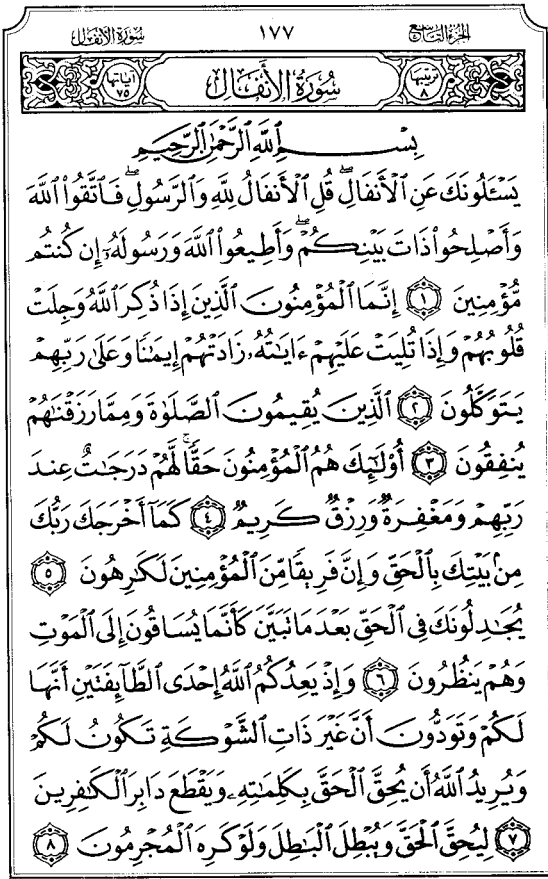 سُورَةُ الأَنفَال ١٧٧ الجُزْءُ التَّاسِعُ
آيَاتُهَا ٧٥ سُورَةُ الأَنْفَالِ تَرْتِيبُهَا ٨
بِسْمِ ٱللَّهِ ٱلرَّحْمَٰنِ ٱلرَّحِيمِ
يَسْـَٔلُونَكَ عَنِ ٱلْأَنفَالِۖ قُلِ ٱلْأَنفَالُ لِلَّهِ وَٱلرَّسُولِۖ فَٱتَّقُوا۟ ٱللَّهَ
وَأَصْلِحُوا۟ ذَاتَ بَيْنِكُمْۖ وَأَطِيعُوا۟ ٱللَّهَ وَرَسُولَهُۥٓ إِن كُنتُم
مُّؤْمِنِينَ ١ إِنَّمَا ٱلْمُؤْمِنُونَ ٱلَّذِينَ إِذَا ذُكِرَ ٱللَّهُ وَجِلَتْ
قُلُوبُهُمْ وَإِذَا تُلِيَتْ عَلَيْهِمْ ءَايَٰتُهُۥ زَادَتْهُمْ إِيمَٰنًا وَعَلَىٰ رَبِّهِمْ
يَتَوَكَّلُونَ ٢ ٱلَّذِينَ يُقِيمُونَ ٱلصَّلَوٰةَ وَمِمَّا رَزَقْنَٰهُمْ
يُنفِقُونَ ٣ أُو۟لَٰٓئِكَ هُمُ ٱلْمُؤْمِنُونَ حَقًّاۚ لَّهُمْ دَرَجَٰتٌ عِندَ
رَبِّهِمْ وَمَغْفِرَةٌ وَرِزْقٌ كَرِيمٌ ٤ كَمَآ أَخْرَجَكَ رَبُّكَ
مِنۢ بَيْتِكَ بِٱلْحَقِّ وَإِنَّ فَرِيقًا مِّنَ ٱلْمُؤْمِنِينَ لَكَٰرِهُونَ ٥
يُجَٰدِلُونَكَ فِى ٱلْحَقِّ بَعْدَ مَا تَبَيَّنَ كَأَنَّمَا يُسَاقُونَ إِلَى ٱلْمَوْتِ
وَهُمْ يَنظُرُونَ ٦ وَإِذْ يَعِدُكُمُ ٱللَّهُ إِحْدَى ٱلطَّآئِفَتَيْنِ أَنَّهَا
لَكُمْ وَتَوَدُّونَ أَنَّ غَيْرَ ذَاتِ ٱلشَّوْكَةِ تَكُونُ لَكُمْ
وَيُرِيدُ ٱللَّهُ أَن يُحِقَّ ٱلْحَقَّ بِكَلِمَٰتِهِۦ وَيَقْطَعَ دَابِرَ ٱلْكَٰفِرِينَ
٧ لِيُحِقَّ ٱلْحَقَّ وَيُبْطِلَ ٱلْبَٰطِلَ وَلَوْ كَرِهَ ٱلْمُجْرِمُونَ ٨